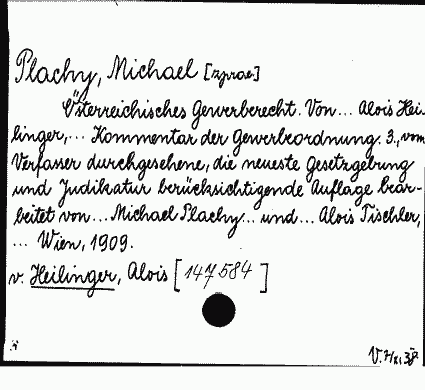 Plachy, Michael [zprac.]
Österreichisches Gewerberecht. Von... Alois Hei-
linger,... Kommentar der Gewerbeordnung. 3., vom
Verfasser durchgesehene, die neueste Gesetzgebung
und Judikatur berücksichtigende Auflage bear-
beitet von... Michael Plachy... und... Alois Tischler,
... Wien, 1909.
v. Heilinger, Alois [147584]